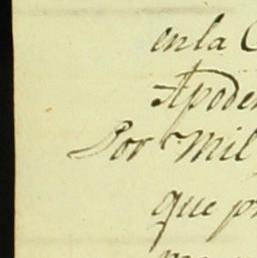 en la C
Apode
Por Mil
que p